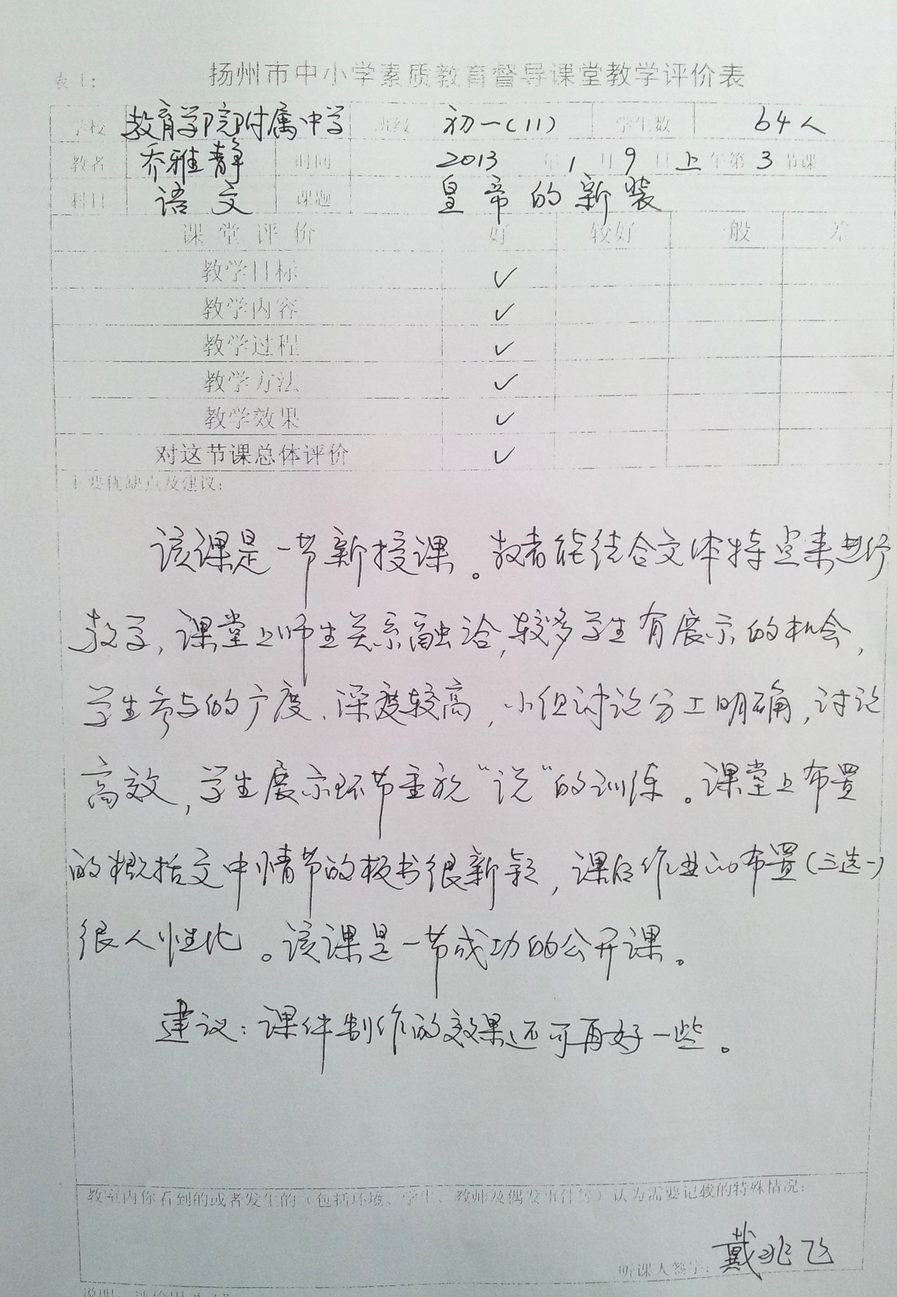 扬州市中小学素质教育督导课堂教学评价表
学校 教育学院附属中学 班级 初一(11) 学生数 64人
教者 乔雅静 时间 2013年1月9日上午第3节课
科目 语文 课题 皇帝的新装
课堂评价 好 较好 一般 差
教学目标 ✓
教学内容 ✓
教学过程 ✓
教学方法 ✓
教学效果 ✓
对这节课总体评价 ✓
主要优缺点及建议：
该课是一节新授课。教者能结合文体特点来进行
教学，课堂上师生关系融洽，较多学生有展示的机会，
学生参与的广度、深度较高，小但讨论分工明确，讨论
高效，学生展示环节重视“说”的训练。课堂上布置
的概括文中情节的板书很新颖，课后作业的布置(三选一)
很人性化。该课是一节成功的公开课。
建议：课件制作的效果还可再好一些。
教室内你看到的或者发生的（包括环境、学生、教师及偶发事件等）认为需要记载的特殊情况：
听课人签字：戴兆飞